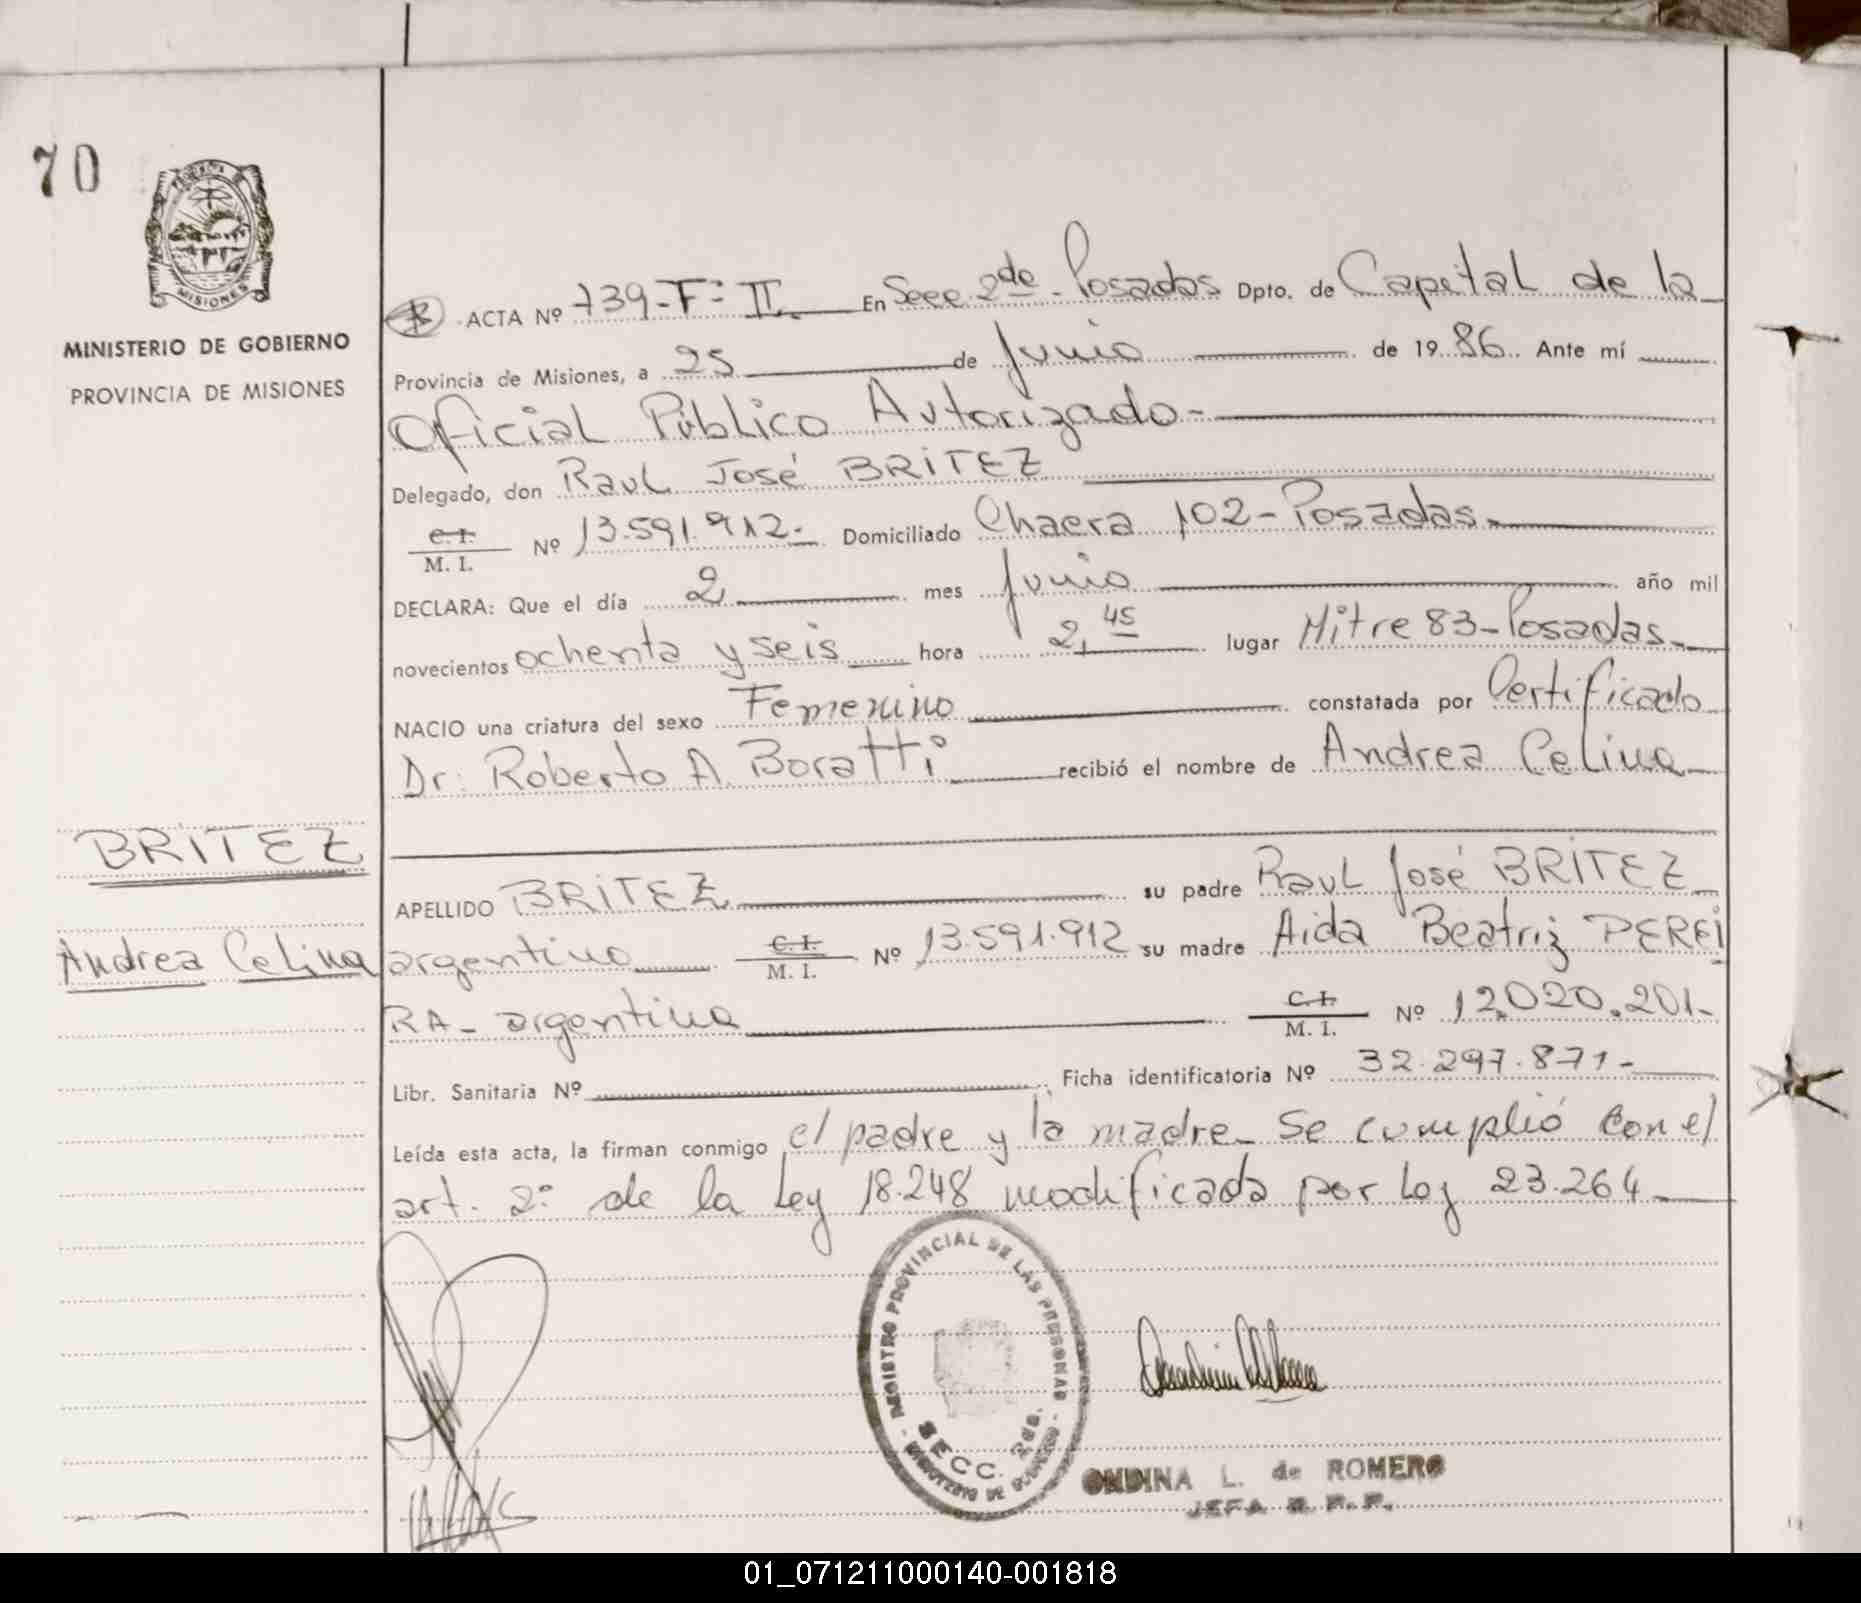 70
MISIONES
MINISTERIO DE GOBIERNO
PROVINCIA DE MISIONES
ACTA Nº 739-Tº II. En Secc. 2da - Posadas Dpto. de Capital de la
Provincia de Misiones, a 25 de Junio de 19 86. Ante mí
Oficial Público Autorizado-
Delegado, don Raul José BRITEZ
C.I.
M. I. Nº 13.591.912- Domiciliado Chacra 102-Posadas.
DECLARA: Que el día 2 mes Junio año mil
novecientos ochenta y seis hora 2,45 lugar Mitre 83-Posadas.
NACIO una criatura del sexo Femenino constatada por Certificado
Dr: Roberto A. Boratti recibió el nombre de Andrea Celina
BRITEZ
Andrea Celina
APELLIDO BRITEZ su padre Raul José BRITEZ
argentino C.I.
M. I. Nº 13.591.912 su madre Aida Beatriz PEREI
RA- argentina C.I.
M. I. Nº 12.020.201-
Libr. Sanitaria Nº Ficha identificatoria Nº 32.297.871-
Leída esta acta, la firman conmigo el padre y la madre- Se cumplió con el
art. 2º de la Ley 18.248 modificada por Ley 23.264
REGISTRO PROVINCIAL DE LAS PERSONAS
SECC. 2da.
MINISTERIO DE GOBIERNO
ONDINA L. de ROMERO
JEFA R. P. P.
01_071211000140-001818